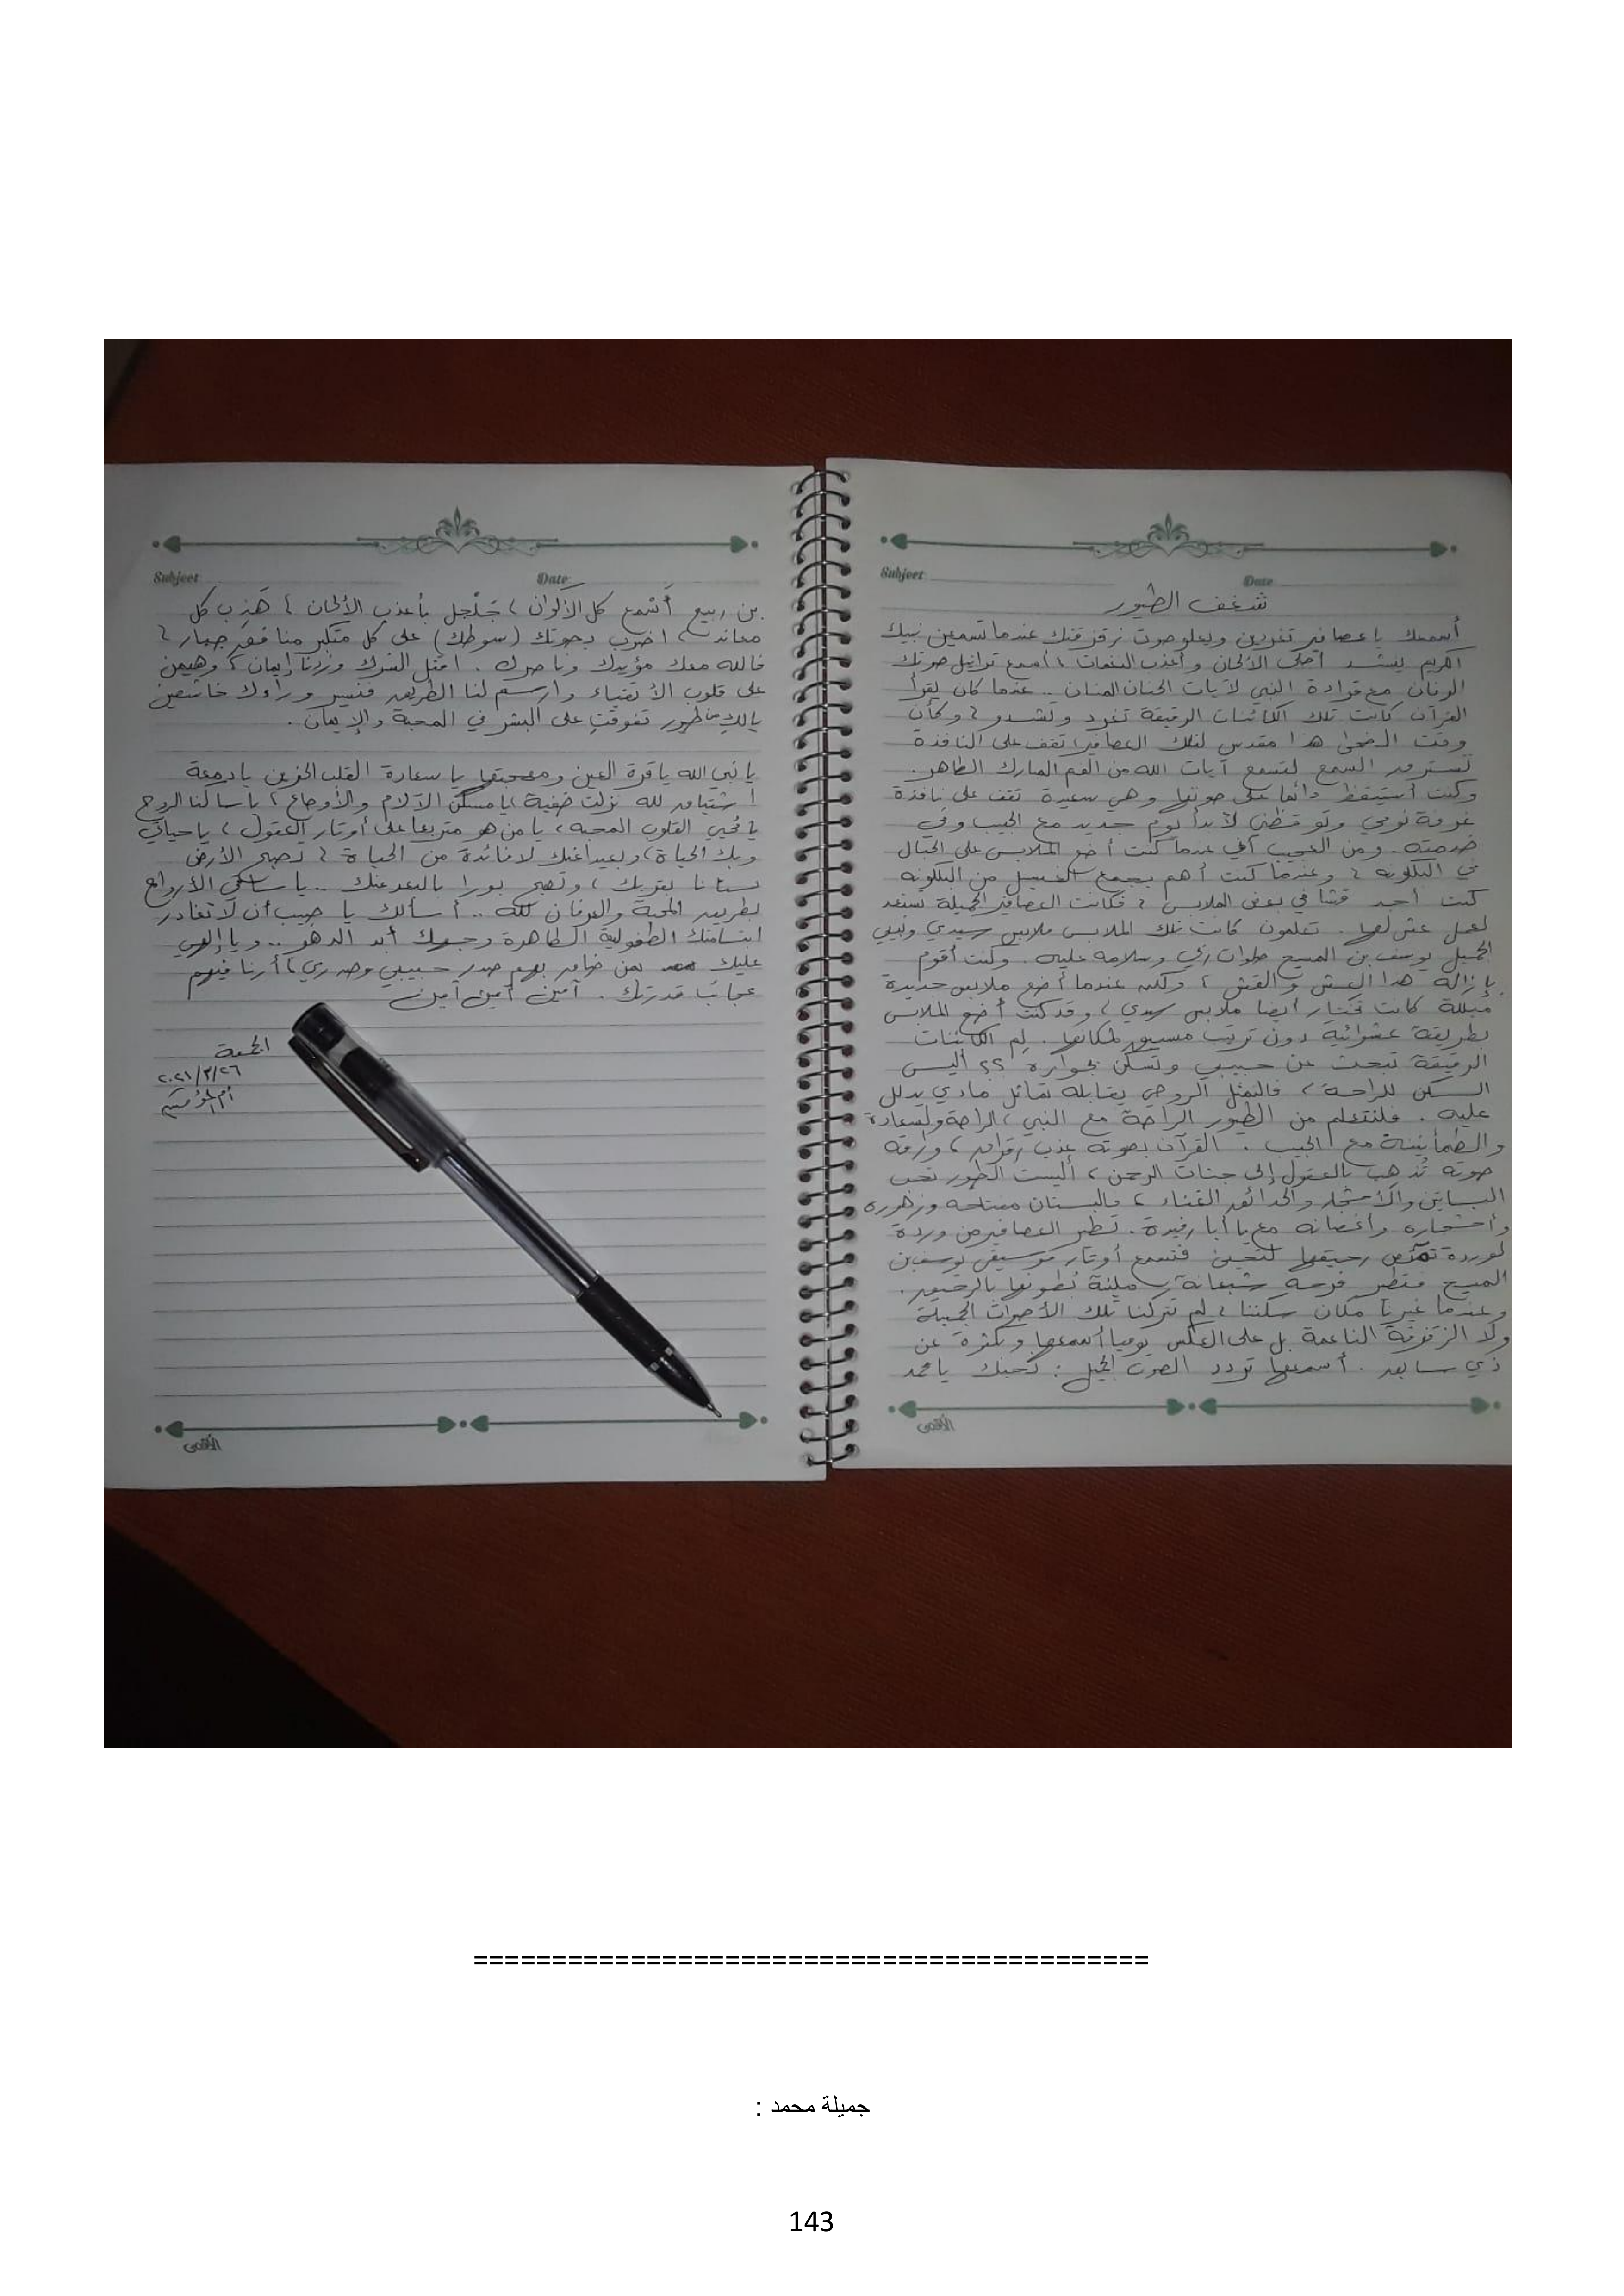 Subject
Date
شغف الطيور
أسمعك يا عصافير تغردين ويعلو صوت زقزقتك عندما تسمعين نبيك
الكريم ينشد أحلى الألحان وأعذب النغمات، أسمع تراتيل صوتك
الرنان مع قراءة النبي لآيات الحنان المنان .. عندما كان يقرأ
القرآن كانت تلك الكائنات الرقيقة تغرد وتشدو، وكأن
وقت الضحى هذا مقدس لتلك العصافير، تقف على النافذة
تسترق السمع لتسمع آيات الله من الفم المبارك الطاهر.
وكنت أستيقظ دائما على صوتها وهي سعيدة تقف على نافذة
غرفة نومي وتوقظني لأبدأ يوم جديد مع الحبيب وفي
خدمته. ومن العجيب أني عندما كنت أضع الملابس على الحبال
في البلكونه، وعندما كنت أهم بجمع الغسيل من البلكونه
كنت أجد قشا في بعض الملابس، فكانت العصافير الجميلة تستعد
لعمل عش لها. تعلمون كانت تلك الملابس ملابس سيدي ونبيي
الجميل يوسف بن المسيح صلوات ربي وسلامه عليه. وكنت أقوم
بإزالة هذا العش والقش، ولكن عندما أضع ملابس جديدة
مبللة كانت تختار أيضا ملابس سيدي، وقد كنت أضع الملابس
بطريقة عشوائية دون ترتيب مسبق لمكانها. لِم الكائنات
الرقيقة تبحث عن حبيبي وتسكن بجواره ؟؟ أليس
السكن للراحة، فالتمثل الروحي يقابله تماثل مادي يدلل
عليه. فلنتعلم من الطيور الراحة مع النبي، الراحة والسعادة
والطمأنينة مع الحبيب. القرآن بصوته عذب رقراق، ورقة
صوته تُذهب بالعقول إلى جنات الرحمن، أليست الطيور تحب
البساتين والأشجار والحدائق الغناء، فالبستان مفتاحه وزهوره
وأشجاره وأغصانه مع يا أبا رفيدة. تطير العصافير من وردة
لوردة تمتص رحيقها لتحيى فتسمع أوتار موسيقى يوسف بن
المسيح فتطير فرحه شبعانة، مليئة بُطونها بالرحيق.
وعندما غيرنا مكان سكننا، لم تتركنا تلك الأصوات الجميلة
ولا الزقزقة الناعمة بل على العكس يوميا أسمعها وبكثرة عن
ذي سابق. أسمعها تردد الصوت الجميل: نحبك يا محمد
الأقصى
Subject
Date
بن ربيع أَسْمع كل الأكوان، جَلْجل بأعذب الألحان، هَذِّب كل
معاند، اضرب بدعوتك (سوطك) على كل متكبر منافق جبار،
فالله معك مؤيدك وناصرك. اقتل الشرك وزدنا إيمان، وهيمن
على قلوب الأتقياء وارسم لنا الطريق فنسير وراءك خاشعين
يالكِ من طيور تفوقتِ على البشر في المحبة والإيمان.
يا نبي الله يا قرة العين ومهجتها يا سعادة القلب الحزين يا دمعة
اشتياق لله نزلت خفية، يا مسكن الآلام والأوجاع، يا ساكنا الروح
يا مُحيي القلوب المحبه، يا من هو متربعا على أوتار العقول، يا حياتي
وبك الحياة، وبعيدا عنك لا فائدة من الحياة، تصبح الأرض
بستانا بقربك، وتصبح بورا بالبعد عنك .. يا ساقي الأرواح
بطريق المحبة والعرفان لله .. أسألك يا حبيب أن لا تغادر
ابتسامتك الطفولية الطاهرة وجهك أبد الدهر .. ويا إلهي
عليك بمن ضاق بهم صدر حبيبي وصدري، أرنا فيهم
عجائب قدرتك. آمين آمين آمين
الجمعة
٢٠٢١/٣/٢٦
أم المؤمنين
الأقصى
===========================================
جميلة محمد :
143